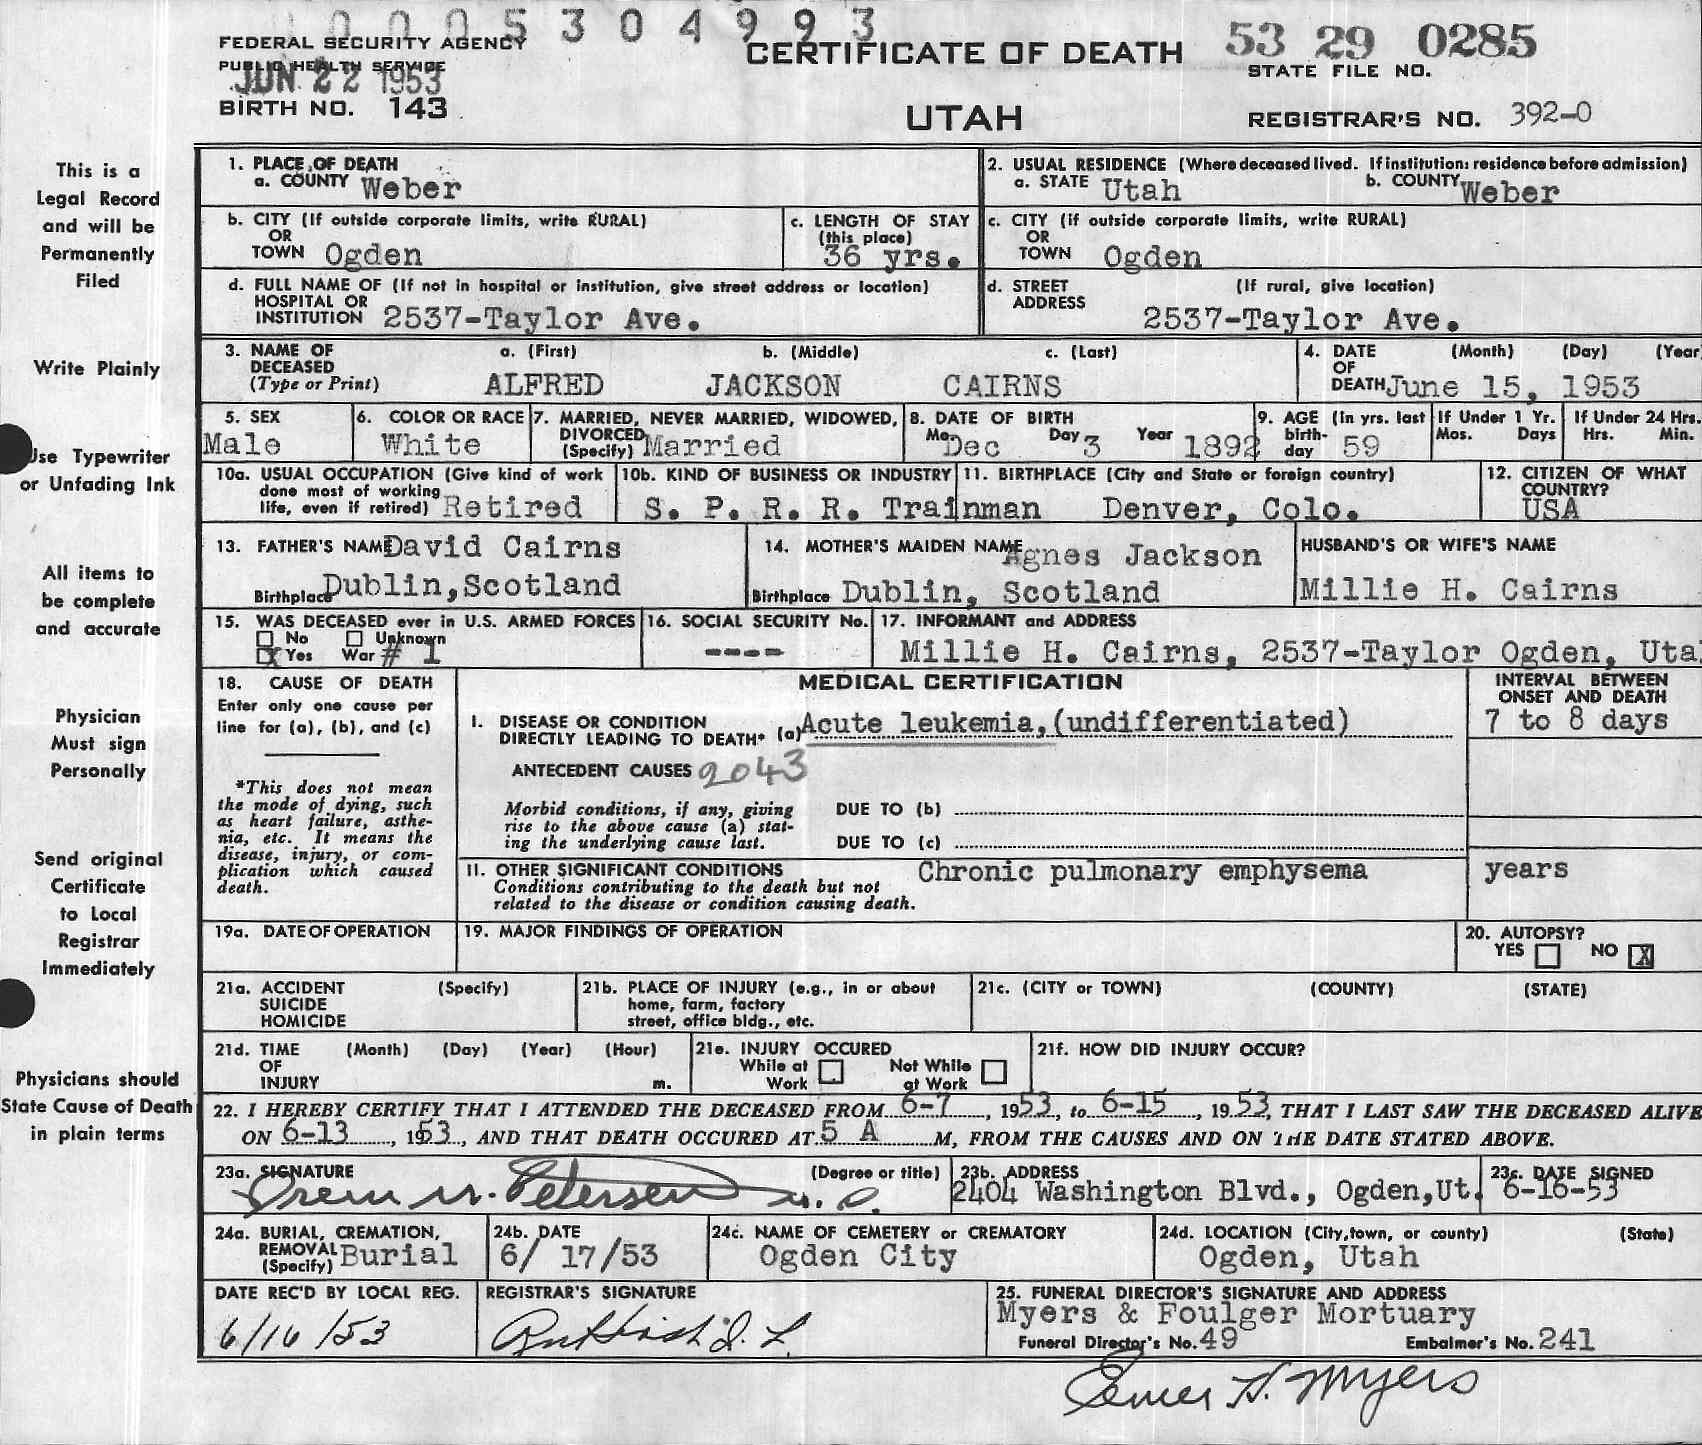 0005304993
FEDERAL SECURITY AGENCY
PUBLIC HEALTH SERVICE
JUN 22 1953
BIRTH NO. 143
CERTIFICATE OF DEATH
UTAH
53 29 0285
STATE FILE NO.
REGISTRAR'S NO. 392-0
This is a
Legal Record
and will be
Permanently
Filed
Write Plainly
Use Typewriter
or Unfading Ink
All items to
be complete
and accurate
Physician
Must sign
Personally
Send original
Certificate
to Local
Registrar
Immediately
Physicians should
State Cause of Death
in plain terms
1. PLACE OF DEATH
a. COUNTY Weber
2. USUAL RESIDENCE (Where deceased lived. If institution: residence before admission)
a. STATE Utah b. COUNTY Weber
b. CITY (If outside corporate limits, write RURAL)
OR
TOWN Ogden
c. LENGTH OF STAY
(this place)
36 yrs.
c. CITY (if outside corporate limits, write RURAL)
OR
TOWN Ogden
d. FULL NAME OF (If not in hospital or institution, give street address or location)
HOSPITAL OR
INSTITUTION 2537-Taylor Ave.
d. STREET (If rural, give location)
ADDRESS
2537-Taylor Ave.
3. NAME OF a. (First) b. (Middle) c. (Last)
DECEASED
(Type or Print) ALFRED JACKSON CAIRNS
4. DATE (Month) (Day) (Year
OF
DEATH June 15, 1953
5. SEX
Male
6. COLOR OR RACE
White
7. MARRIED, NEVER MARRIED, WIDOWED,
DIVORCED
(Specify) Married
8. DATE OF BIRTH
Mo. Dec Day 3 Year 1892
9. AGE (In yrs. last
birth-
day 59
If Under 1 Yr.
Mos. Days
If Under 24 Hrs.
Hrs. Min.
10a. USUAL OCCUPATION (Give kind of work
done most of working
life, even if retired) Retired
10b. KIND OF BUSINESS OR INDUSTRY
S. P. R. R. Trainman
11. BIRTHPLACE (City and State or foreign country)
Denver, Colo.
12. CITIZEN OF WHAT
COUNTRY?
USA
13. FATHER'S NAME David Cairns
Birthplace Dublin, Scotland
14. MOTHER'S MAIDEN NAME Agnes Jackson
Birthplace Dublin, Scotland
HUSBAND'S OR WIFE'S NAME
Millie H. Cairns
15. WAS DECEASED ever in U.S. ARMED FORCES
No Unknown
X Yes War # 1
16. SOCIAL SECURITY No.
----
17. INFORMANT and ADDRESS
Millie H. Cairns, 2537-Taylor Ogden, Uta
18. CAUSE OF DEATH
Enter only one cause per
line for (a), (b), and (c)
*This does not mean
the mode of dying, such
as heart failure, asthe-
nia, etc. It means the
disease, injury, or com-
plication which caused
death.
MEDICAL CERTIFICATION
I. DISEASE OR CONDITION
DIRECTLY LEADING TO DEATH* (a) Acute leukemia, (undifferentiated)
ANTECEDENT CAUSES 2043
Morbid conditions, if any, giving
rise to the above cause (a) stat-
ing the underlying cause last.
DUE TO (b)
DUE TO (c)
11. OTHER SIGNIFICANT CONDITIONS Chronic pulmonary emphysema
Conditions contributing to the death but not
related to the disease or condition causing death.
INTERVAL BETWEEN
ONSET AND DEATH
7 to 8 days
years
19a. DATE OF OPERATION
19. MAJOR FINDINGS OF OPERATION
20. AUTOPSY?
YES NO X
21a. ACCIDENT (Specify)
SUICIDE
HOMICIDE
21b. PLACE OF INJURY (e.g., in or about
home, farm, factory
street, office bldg., etc.
21c. (CITY or TOWN) (COUNTY) (STATE)
21d. TIME (Month) (Day) (Year) (Hour)
OF
INJURY m.
21e. INJURY OCCURED
While at Not While
Work at Work
21f. HOW DID INJURY OCCUR?
22. I HEREBY CERTIFY THAT I ATTENDED THE DECEASED FROM 6-7, 1953, to 6-15, 1953, THAT I LAST SAW THE DECEASED ALIVE
ON 6-13, 1953, AND THAT DEATH OCCURED AT 5 A M, FROM THE CAUSES AND ON THE DATE STATED ABOVE.
23a. SIGNATURE (Degree or title)
Petersen M. D.
23b. ADDRESS
2404 Washington Blvd., Ogden, Ut.
23c. DATE SIGNED
6-16-53
24a. BURIAL, CREMATION,
REMOVAL
(Specify) Burial
24b. DATE
6/ 17/53
24c. NAME OF CEMETERY or CREMATORY
Ogden City
24d. LOCATION (City, town, or county) (State)
Ogden, Utah
DATE REC'D BY LOCAL REG.
6/16/53
REGISTRAR'S SIGNATURE
25. FUNERAL DIRECTOR'S SIGNATURE AND ADDRESS
Myers & Foulger Mortuary
Funeral Director's No. 49 Embalmer's No. 241
Elmer H. Myers